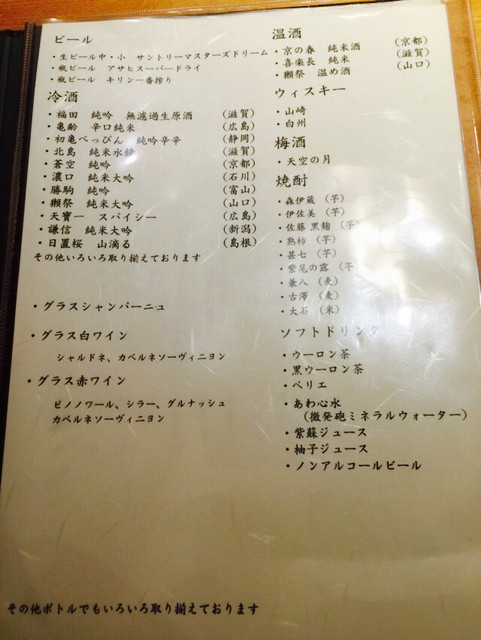 ビール
・生ビール中・小 サントリーマスターズドリーム
・瓶ビール アサヒスーパードライ
・瓶ビール キリン一番搾り
冷酒
・福田 純吟 無濾過生原酒 (滋賀)
・亀齢 辛口純米 (広島)
・初亀べっぴん 純吟辛辛 (静岡)
・北島 純米水 (滋賀)
・蒼空 純吟 (京都)
・濃口 純米大吟 (石川)
・勝駒 純吟 (富山)
・獺祭 純米大吟 (山口)
・天寶一 スパイシー (広島)
・謙信 純米大吟 (新潟)
・日置桜 山滴る (島根)
その他いろいろ取り揃えております
・グラスシャンパーニュ
・グラス白ワイン
シャルドネ、カベルネソーヴィニヨン
・グラス赤ワイン
ピノノワール、シラー、グルナッシュ
カベルネソーヴィニヨン
温酒
・京の春 純米酒 (京都)
・喜楽長 純米 (滋賀)
・獺祭 温め酒 (山口)
ウィスキー
・山崎
・白州
梅酒
・天空の月
焼酎
・森伊蔵 (芋)
・伊佐美 (芋)
・佐藤 黒麹 (芋)
・熟柿 (芋)
・甚七 (芋)
・紫尾の露 (芋)
・兼八 (麦)
・古澤 (麦)
・大石 (米)
ソフトドリンク
・ウーロン茶
・黒ウーロン茶
・ペリエ
・あわ心水
(微発砲ミネラルウォーター)
・紫蘇ジュース
・柚子ジュース
・ノンアルコールビール
その他ボトルでもいろいろ取り揃えております